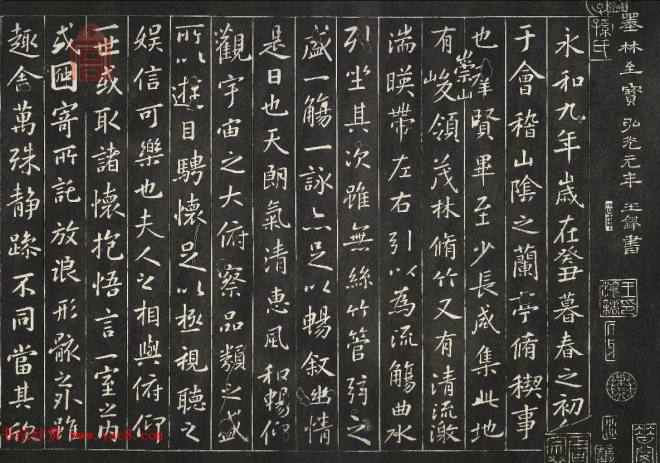 墨林至寶 弘光元年 王鐸書
永和九年歲在癸丑暮春之初
于會稽山陰之蘭亭脩稧事
也羣賢畢至少長咸集此地
有崇山峻領茂林脩竹又有清流激
湍暎帶左右引以為流觴曲水
列坐其次雖無絲竹管弦之
盛一觴一詠亦足以暢敘幽情
是日也天朗氣清惠風和暢仰
觀宇宙之大俯察品類之盛
所以遊目騁懷足以極視聽之
娛信可樂也夫人之相與俯仰
一世或取諸懷抱悟言一室之內
或因寄所託放浪形骸之外雖
趣舍萬殊靜躁不同當其
www.yac8.com